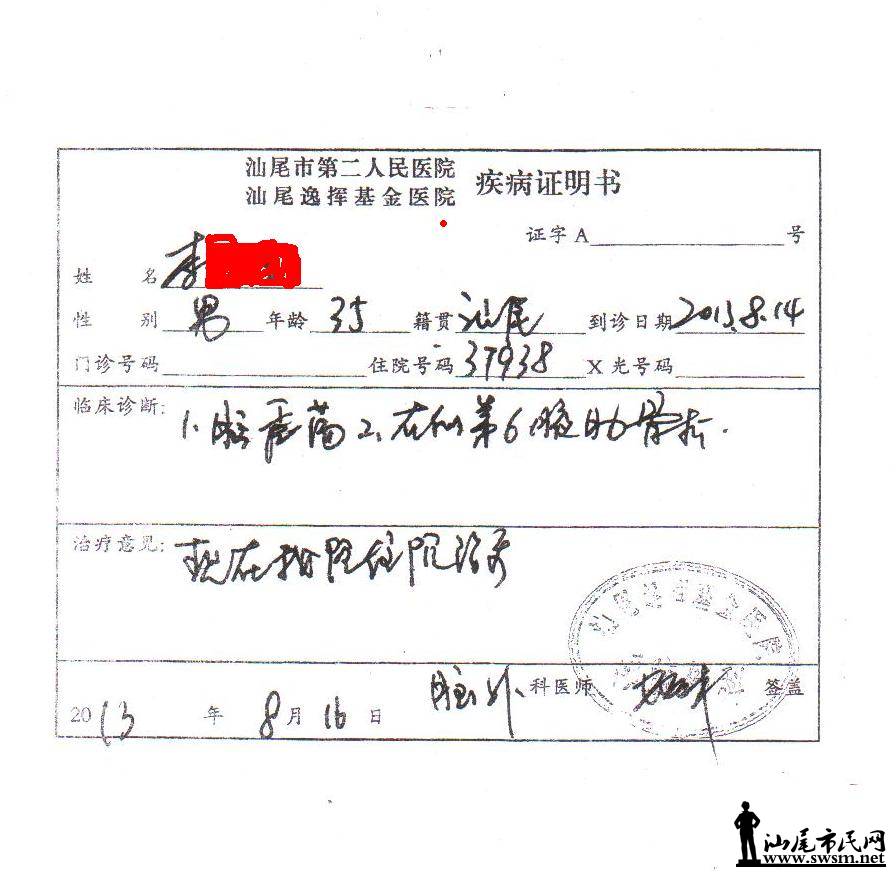 汕尾市第二人民医院
汕尾逸挥基金医院
疾病证明书
证字A 号
姓 名 李
性 别 男 年龄 35 籍贯 汕尾 到诊日期 2013.8.14
门诊号码 住院号码 37938 X光号码
临床诊断: 1.脑震荡 2.左侧第6腋肋骨折.
治疗意见: 现在我院住院治疗
2013 年 8月16日 脑外 科医师 签盖
汕尾逸挥基金医院
汕尾市民网
www.swsm.net